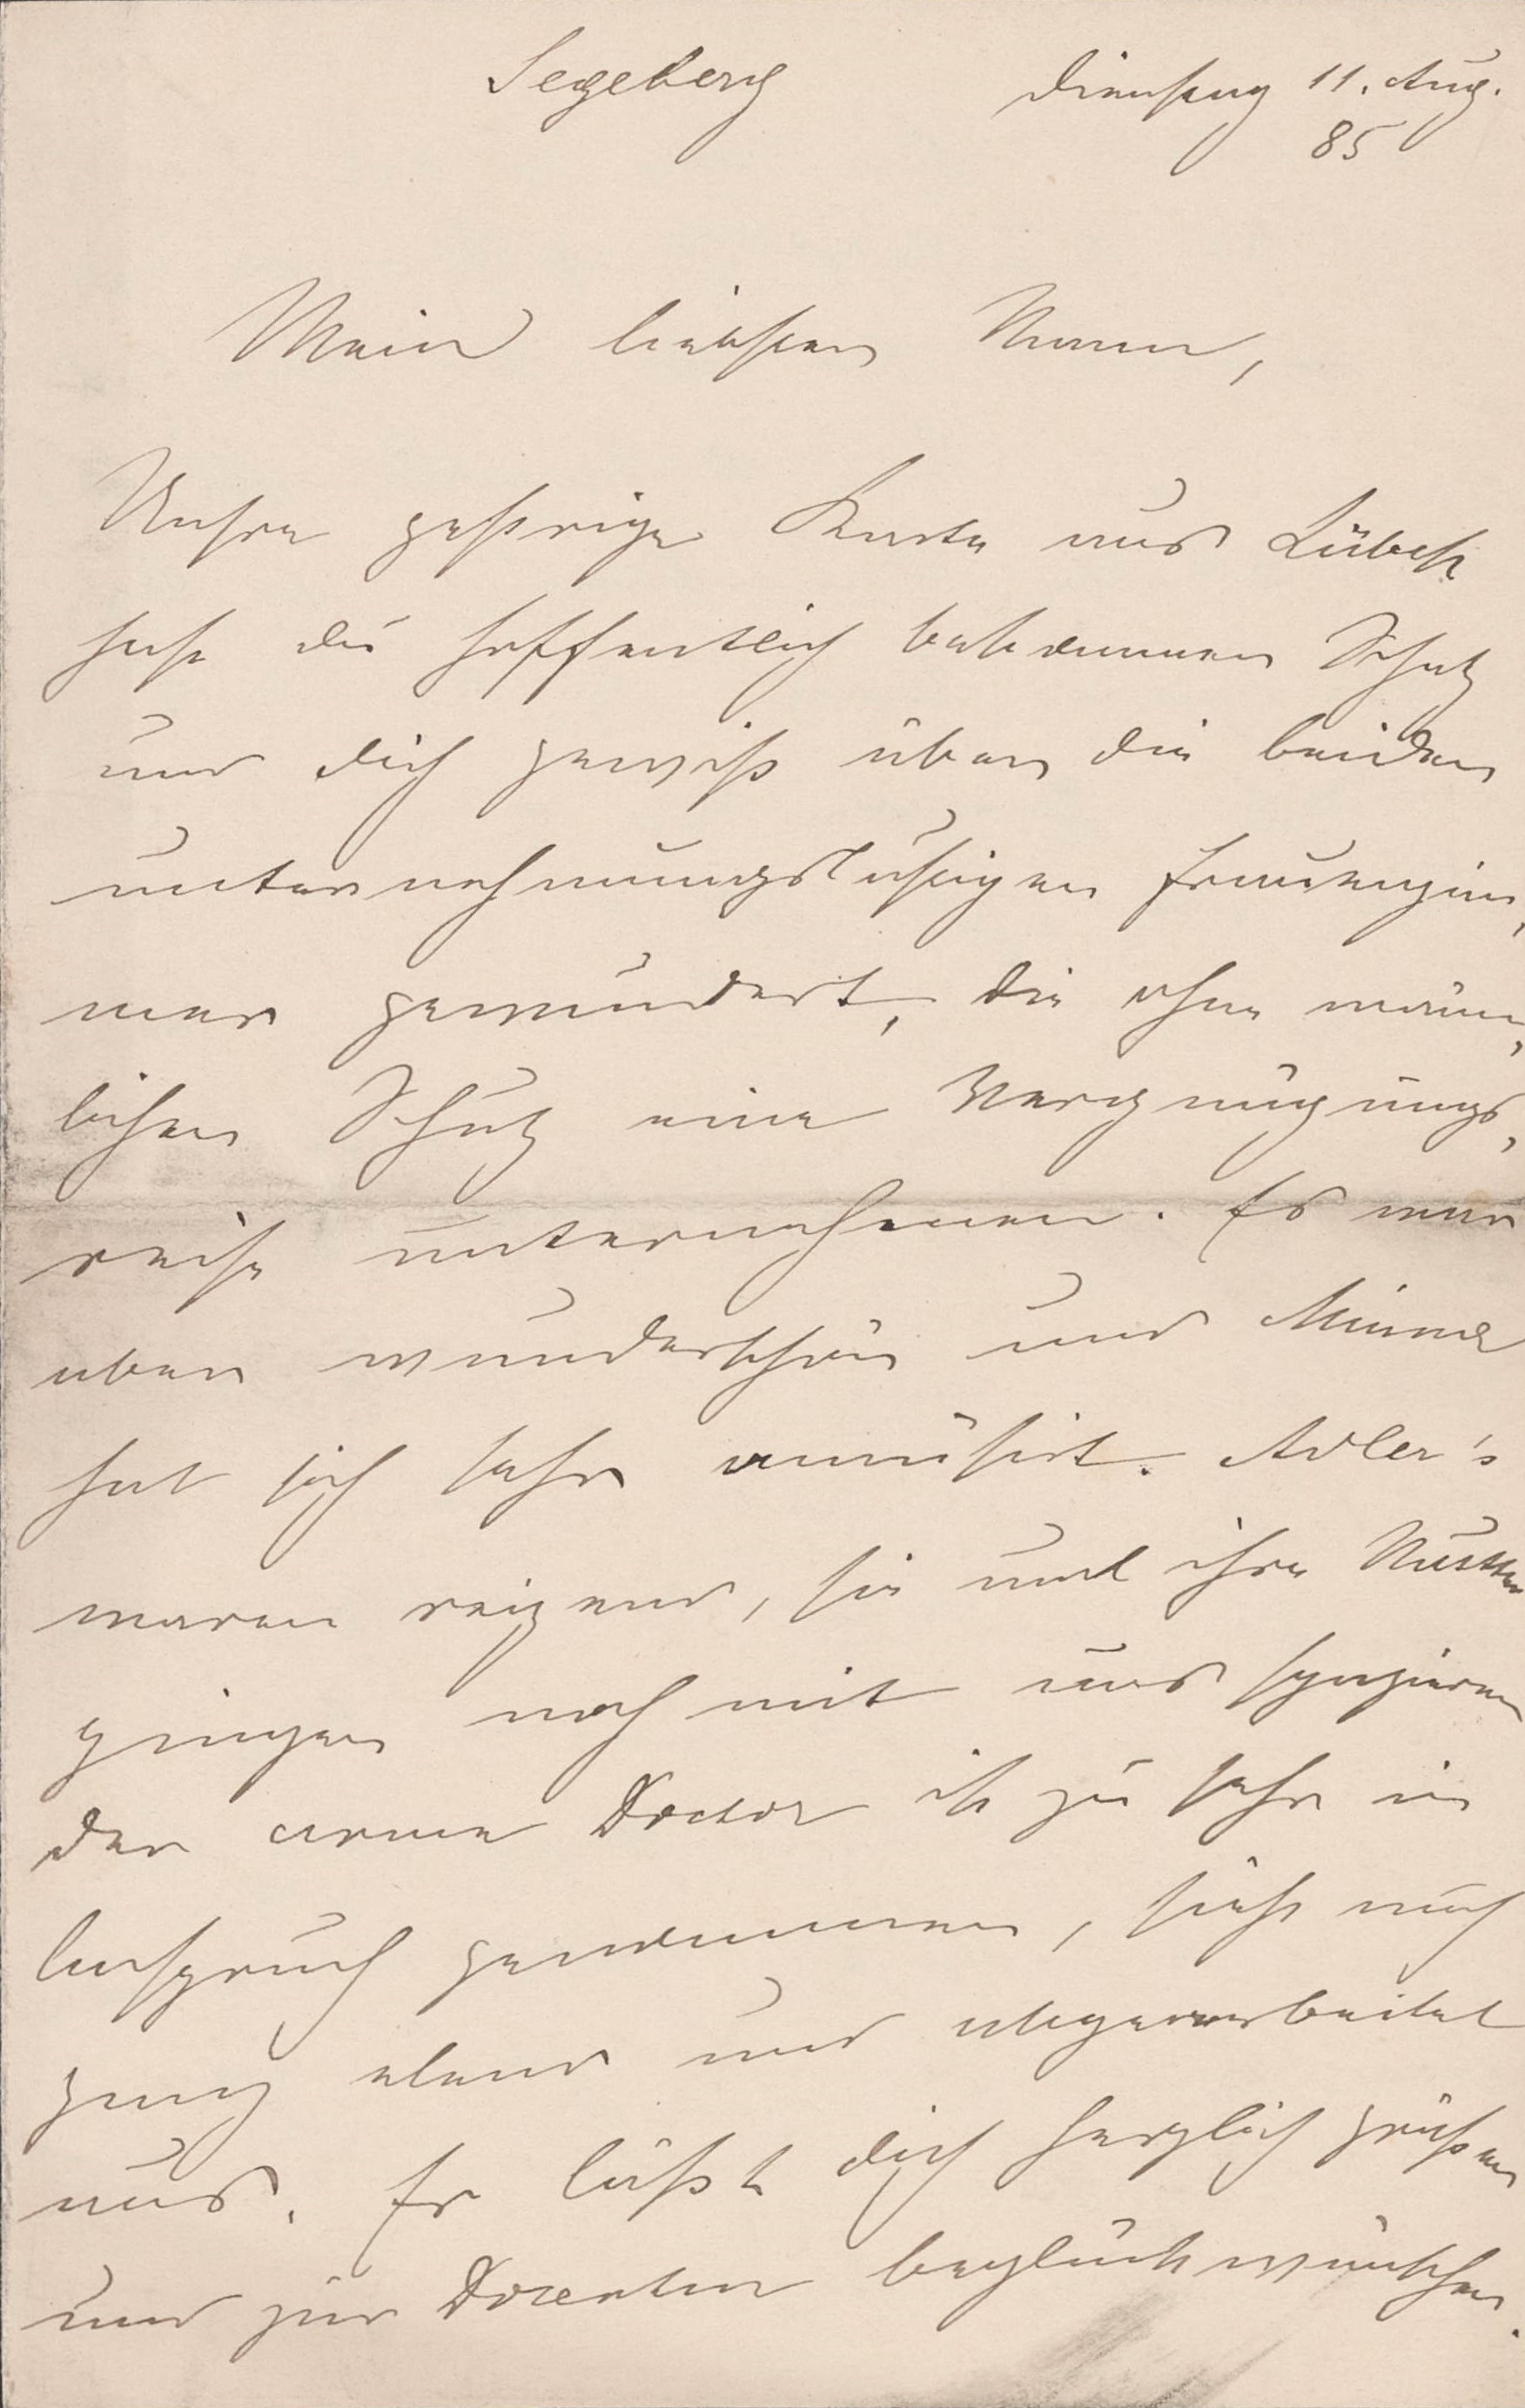 Segeberg Dienstag 11. Aug.
85
Mein liebster Mann,
Unsre gestrige Karte aus Lübeck
hast du hoffentlich bekommen Schatz
und dich gewiß über die beiden
unternehmungslustigen Frauenzim,
mer gewundert, die ohne männ,
lichen Schutz eine Vergnügungs,
reise unternehmen. Es war
aber wunderschön und Minna
hat sich sehr amüsirt. Adler's
waren reizend, sie und ihre Mutter
gingen noch mit uns spazieren
der arme Doctor ist zu sehr in
Anspruch genommen, sieht auch
ganz elend und abgearbeitet
aus. Er läßt dich herzlich grüßen
und zur Docentur beglückwünschen.